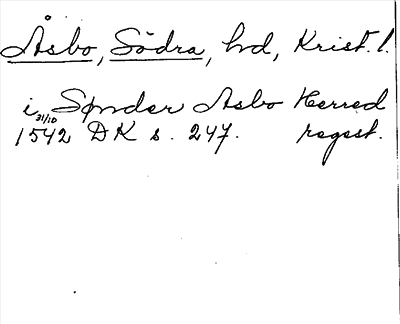 Åsbo, Södra, hd, Krist. l.
i Sønder Asbo Herred
1542 31/10 DK s. 247. regest.